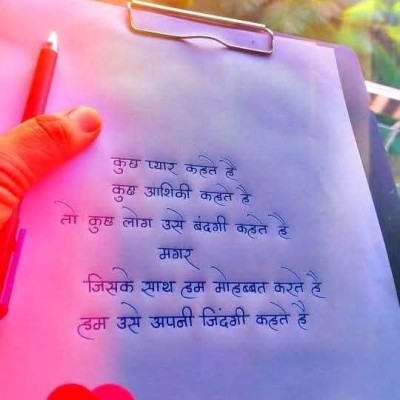 कुछ प्यार कहते है
कुछ आशिकी कहते है
तो कुछ लोग उसे बंदगी कहते है
मगर
जिसके साथ हम मोहब्बत करते है
हम उसे अपनी जिंदगी कहते है